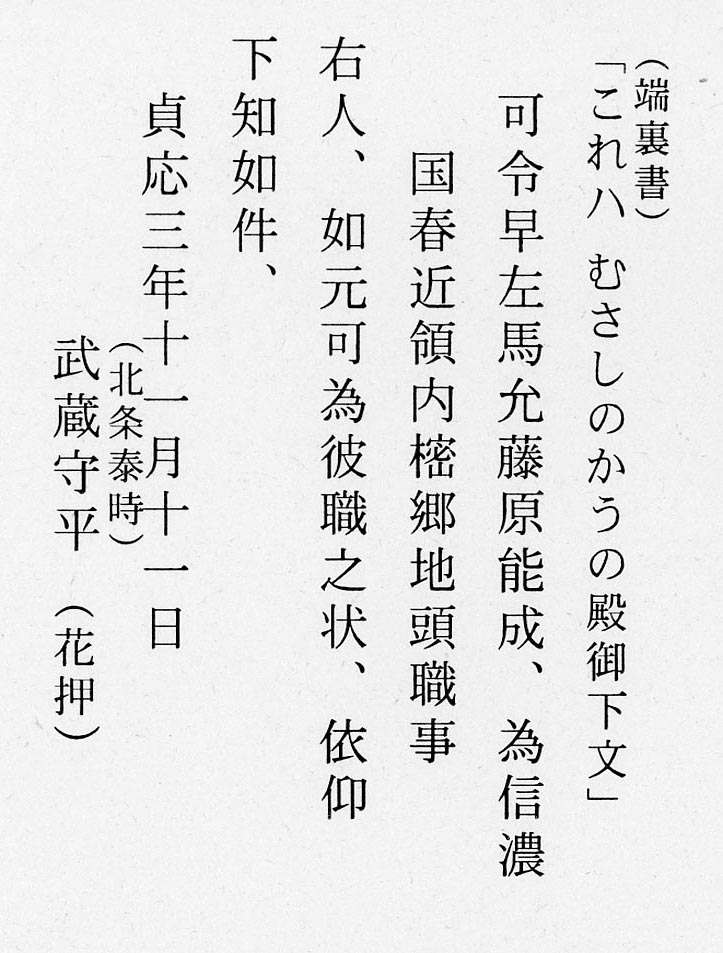 （端裏書）
「これハ むさしのかうの殿御下文」
可令早左馬允藤原能成、為信濃
国春近領内樒郷地頭職事
右人、如元可為彼職之状、依仰
下知如件、
貞応三年十一月十一日
（北条泰時）
武蔵守平 （花押）